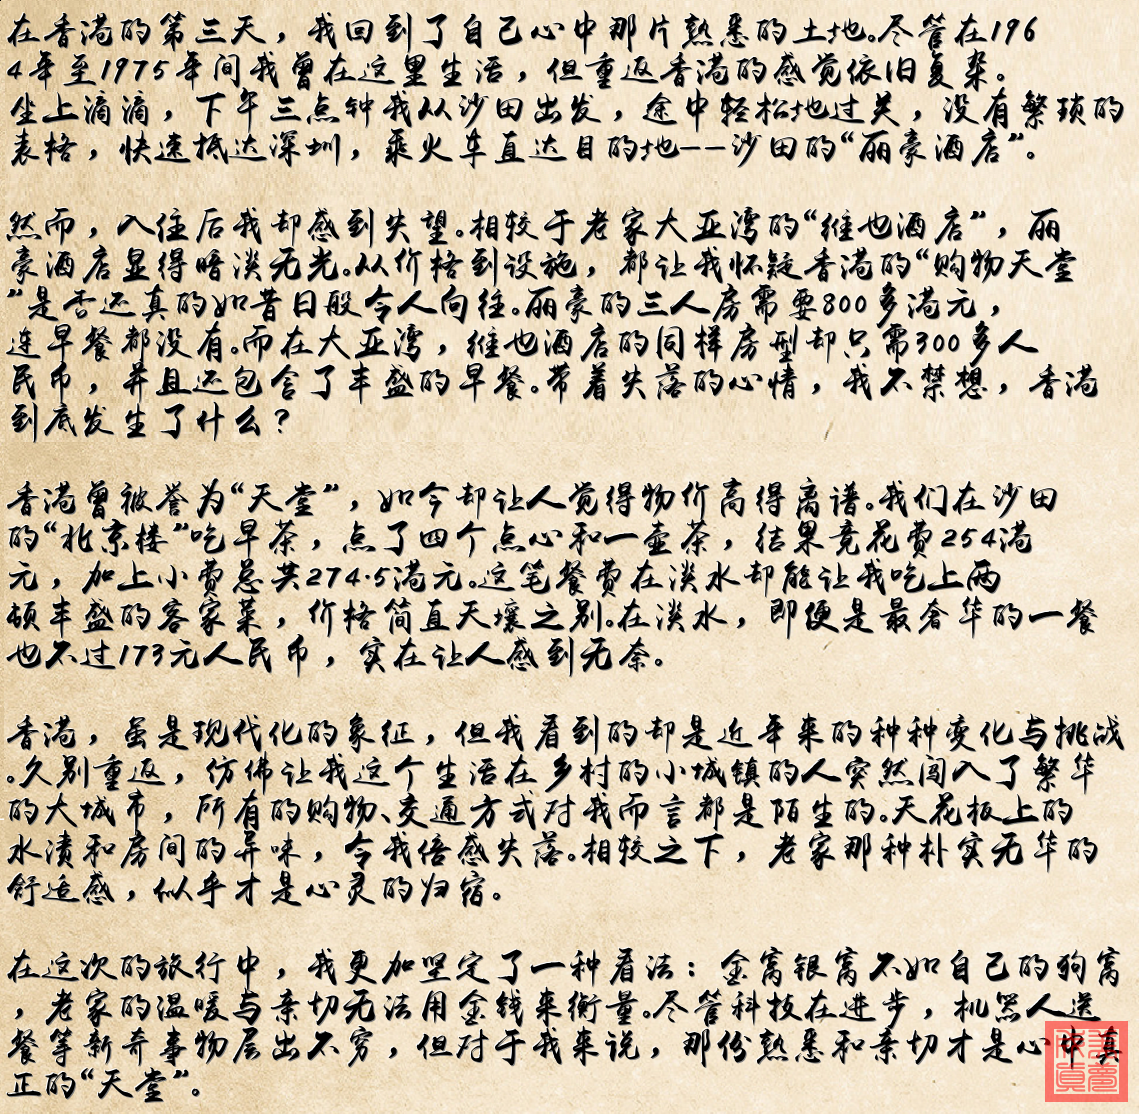 在香港的第三天，我回到了自己心中那片熟悉的土地。尽管在196
4年至1975年间我曾在这里生活，但重返香港的感觉依旧复杂。
坐上滴滴，下午三点钟我从沙田出发，途中轻松地过关，没有繁琐的
表格，快速抵达深圳，乘火车直达目的地--沙田的“丽豪酒店”。
然而，入住后我却感到失望。相较于老家大亚湾的“维也酒店”，丽
豪酒店显得暗淡无光。从价格到设施，都让我怀疑香港的“购物天堂
”是否还真的如昔日般令人向往。丽豪的三人房需要800多港元，
连早餐都没有。而在大亚湾，维也酒店的同样房型却只需300多人
民币，并且还包含了丰盛的早餐。带着失落的心情，我不禁想，香港
到底发生了什么？
香港曾被誉为“天堂”，如今却让人觉得物价高得离谱。我们在沙田
的“北京楼”吃早茶，点了四个点心和一壶茶，结果竟花费254港
元，加上小费总共274.5港元。这笔餐费在淡水却能让我吃上两
顿丰盛的客家菜，价格简直天壤之别。在淡水，即便是最奢华的一餐
也不过173元人民币，实在让人感到无奈。
香港，虽是现代化的象征，但我看到的却是近年来的种种变化与挑战
。久别重返，仿佛让我这个生活在乡村的小城镇的人突然闯入了繁华
的大城市，所有的购物、交通方式对我而言都是陌生的。天花板上的
水渍和房间的异味，令我倍感失落。相较之下，老家那种朴实无华的
舒适感，似乎才是心灵的归宿。
在这次的旅行中，我更加坚定了一种看法：金窝银窝不如自己的狗窝
，老家的温暖与亲切无法用金钱来衡量。尽管科技在进步，机器人送
餐等新奇事物层出不穷，但对于我来说，那份熟悉和亲切才是心中真
正的“天堂”。